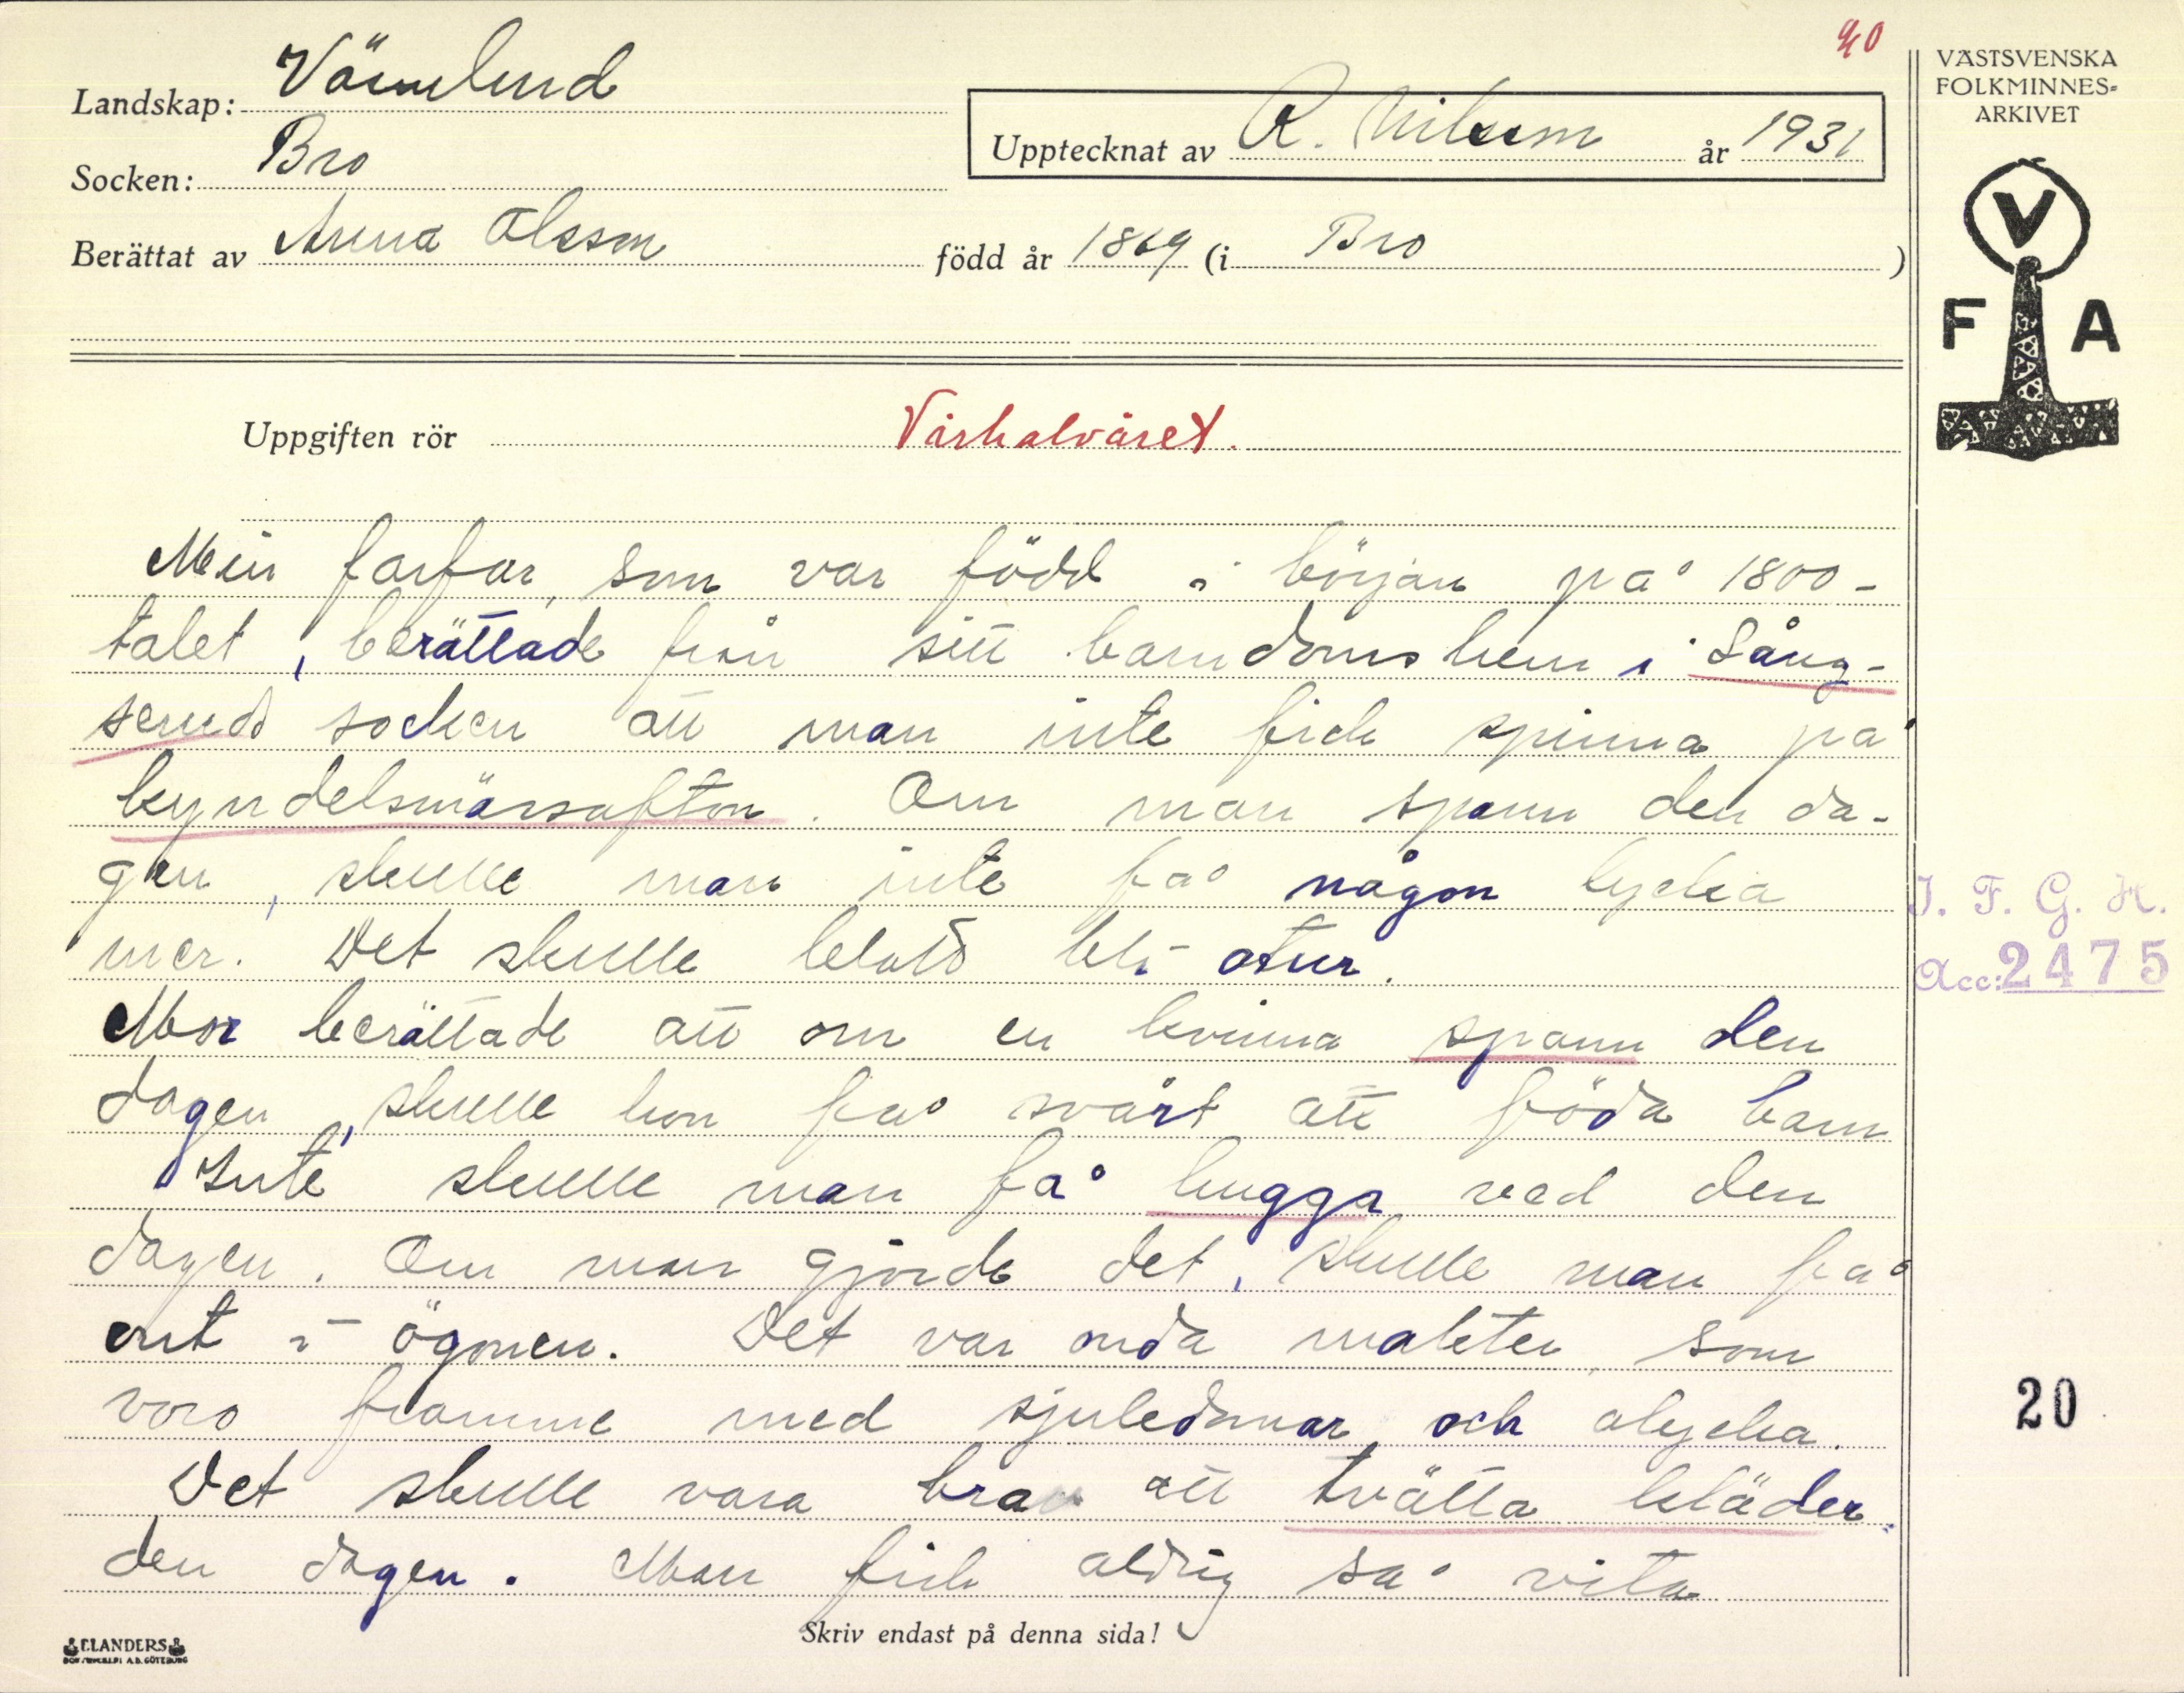 40
Landskap: Värmland
Socken: Bro
Berättat av Anna Olsson född år 1869 (i Bro )
Upptecknat av R. Nilsson år 1931
VÄSTSVENSKA
FOLKMINNES-
ARKIVET
V
F A
Uppgiften rör Vårhalvåret.
Min farfar, som var född i början på 1800-
talet, berättade från sitt barndomshem i Lång-
seruds socken att man inte fick spinna på
kyndelsmässafton. Om man spann den da-
gen, skulle man inte få någon lycka
mer. Det skulle alltid bli otur.
Mor berättade att om en kvinna spann den
dagen, skulle hon få svårt att föda barn
Inte skulle man få hugga ved den
dagen. Om man gjorde det, skulle man få
ont i ögonen. Det var onda makter, som
voro framme med sjukdomar och olycka.
Det skulle vara bra att tvätta kläder
den dagen. Man fick aldrig så vita
I. F. G. H.
Acc: 2475
20
Skriv endast på denna sida!
ELANDERS
BOKTRYCKERI A.B. GÖTEBORG